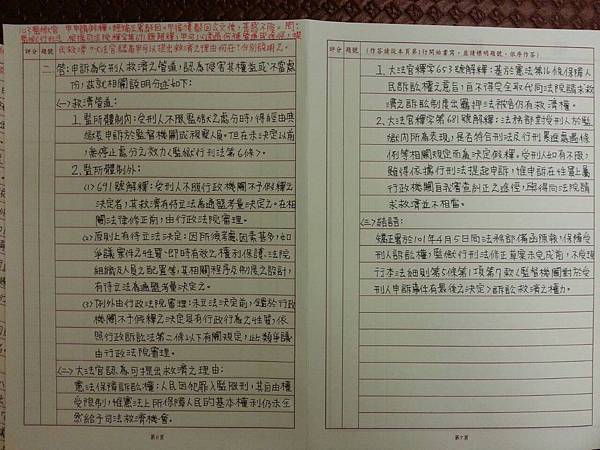 評分 題號
二、
答：申訴為受刑人救濟管道，認為侵害其權益或不當處
份，茲就相關說明分述如下：
(一)救濟管道：
1.監所體制內：受刑人不服監獄之處分時，得經由典
獄長申訴於監督機關或視察人員。但在未決定以前，
無停止處分之效力<監獄行刑法第6條>。
2.監所體制外：
(1)691號解釋：受刑人不服行政機關不予假釋之
決定者，其救濟有待立法為通盤考量決定之。在相
關法律修正前，由行政法院審理。
(2)原則上有待立法決定：因所須考慮因素甚多，如
爭議案件之性質、即時有效之權利保護、法院
組織及人員之配置等，其相關程序及制度之設計，
有待立法為通盤考量決定之。
(3)例外由行政法院審理：未立法決定前，鑑於行政
機關不予假釋之決定具有行政行為之性質，依
照行政訴訟法第二條以下有關規定，此類爭議
由行政法院審理。
(二)大法官認為可提出救濟之理由：
憲法保障訴訟權：人民因犯罪入監服刑，其自由權
受限制，惟憲法上所保障人民的基本權利仍未全
然給予司法救濟機會。
第6頁
評分 題號 (作答請從本頁第1行開始書寫，並請標明題號，依序作答)
1.大法官釋字653號解釋：基於憲法第16條保障人
民訴訟權之意旨，自不得完全取代向法院請求救
濟之訴訟制度出羈押法被告仍有救濟權。
2.大法官釋字第681號解釋：法務部對受刑人於監
獄內所為表現，是否符合刑法及行刑累進處遇條
例等相關規定而為決定假釋。受刑人如有不服，
雖得依據行刑法提起申訴，惟申訴在性質上屬
行政機關自我審查糾正之途徑，與得向法院請
求救濟並不相當。
(三)結語：
矯正署於101年4月5日向法務部備函陳報，保障受
刑人訴訟權，監獄行刑法修正草案未完成前，不受現
行本法細則第5條第1項第7款<監督機關對於受
刑人申訴事件有最後之決定>訴訟救濟之權力。
第7頁